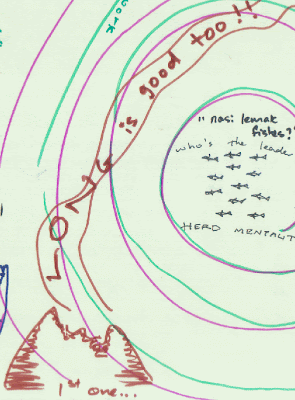 ork
LONG is good too!!
"nasi lemak
fishes?"
who's the leader
HERD MENTALIT
1st one...